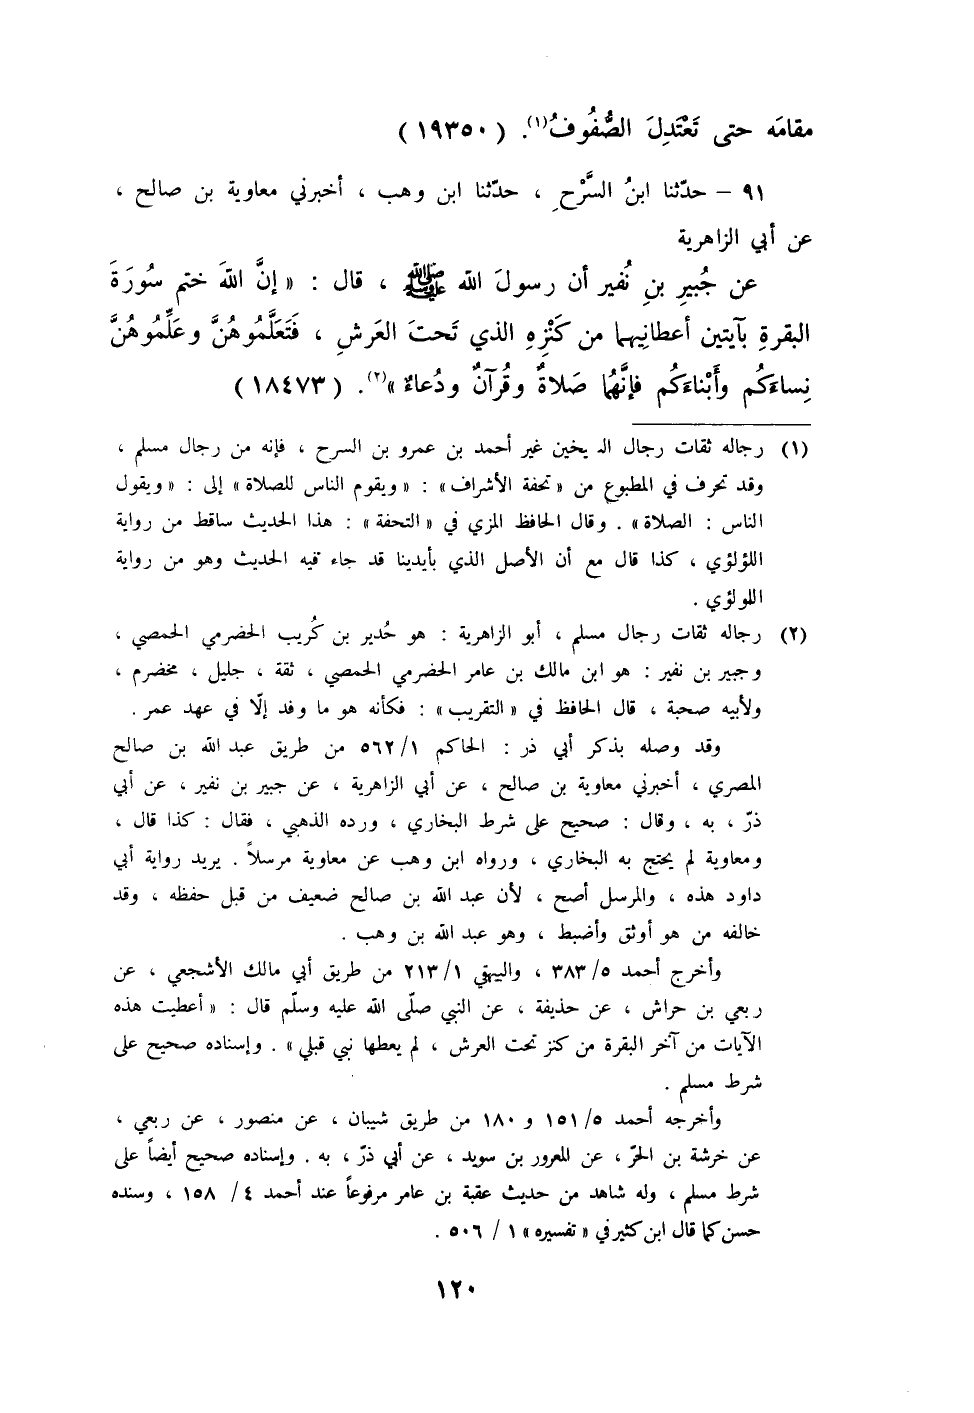 مقامَه حتى تَعْتَدِلَ الصُّفُوفُ(١). (١٩٣٥٠)
٩١ - حدّثنا ابنُ السَّرْحِ ، حدّثنا ابن وهب ، أخبرني معاوية بن صالح ،
عن أبي الزاهرية
عن جُبيرِ بنِ نُفير أن رسولَ الله ﷺ ، قال : « إنَّ اللهَ ختم سُورَةَ
البقرةِ بآيتين أعطانِيهما من كَنْزِهِ الذي تَحتَ العَرشِ ، فَتَعَلَّمُوهُنَّ وعَلِّمُوهُنَّ
نِساءَكُم وأَبْناءَكُم فإنَّهُما صَلاةٌ وقُرآنٌ ودُعاءٌ »(٢). (١٨٤٧٣)
(١) رجاله ثقات رجال الـ يخين غير أحمد بن عمرو بن السرح ، فإنه من رجال مسلم ،
وقد تحرف في المطبوع من « تحفة الأشراف » : « ويقوم الناس للصلاة » إلى : « ويقول
الناس : الصلاة » . وقال الحافظ المزي في « التحفة » : هذا الحديث ساقط من رواية
اللؤلؤي ، كذا قال مع أن الأصل الذي بأيدينا قد جاء فيه الحديث وهو من رواية
اللولؤي .
(٢) رجاله ثقات رجال مسلم ، أبو الزاهرية : هو حُدير بن كُريب الحضرمي الحمصي ،
وجبير بن نفير : هو ابن مالك بن عامر الحضرمي الحمصي ، ثقة ، جليل ، مخضرم ،
ولأبيه صحبة ، قال الحافظ في « التقريب » : فكأنه هو ما وفد إلّا في عهد عمر .
وقد وصله بذكر أبي ذر : الحاكم ١/ ٥٦٢ من طريق عبد الله بن صالح
المصري ، أخبرني معاوية بن صالح ، عن أبي الزاهرية ، عن جبير بن نفير ، عن أبي
ذرّ ، به ، وقال : صحيح على شرط البخاري ، ورده الذهبي ، فقال : كذا قال ،
ومعاوية لم يحتج به البخاري ، ورواه ابن وهب عن معاوية مرسلاً . يريد رواية أبي
داود هذه ، والمرسل أصح ، لأن عبد الله بن صالح ضعيف من قبل حفظه ، وقد
خالفه من هو أوثق وأضبط ، وهو عبد الله بن وهب .
وأخرج أحمد ٥/ ٣٨٣ ، والبيهقي ١/ ٢١٣ من طريق أبي مالك الأشجعي ، عن
ربعي بن حراش ، عن حذيفة ، عن النبي صلّى الله عليه وسلّم قال : « أعطيت هذه
الآيات من آخر البقرة من كنز تحت العرش ، لم يعطها نبي قبلي » . وإسناده صحيح على
شرط مسلم .
وأخرجه أحمد ٥/ ١٥١ و ١٨٠ من طريق شيبان ، عن منصور ، عن ربعي ،
عن خرشة بن الحرّ ، عن المعرور بن سويد ، عن أبي ذرّ ، به . وإسناده صحيح أيضاً على
شرط مسلم ، وله شاهد من حديث عقبة بن عامر مرفوعاً عند أحمد ٤ / ١٥٨ ، وسنده
حسن كما قال ابن كثير في « تفسيره » ١ / ٥٠٦ .
١٢٠